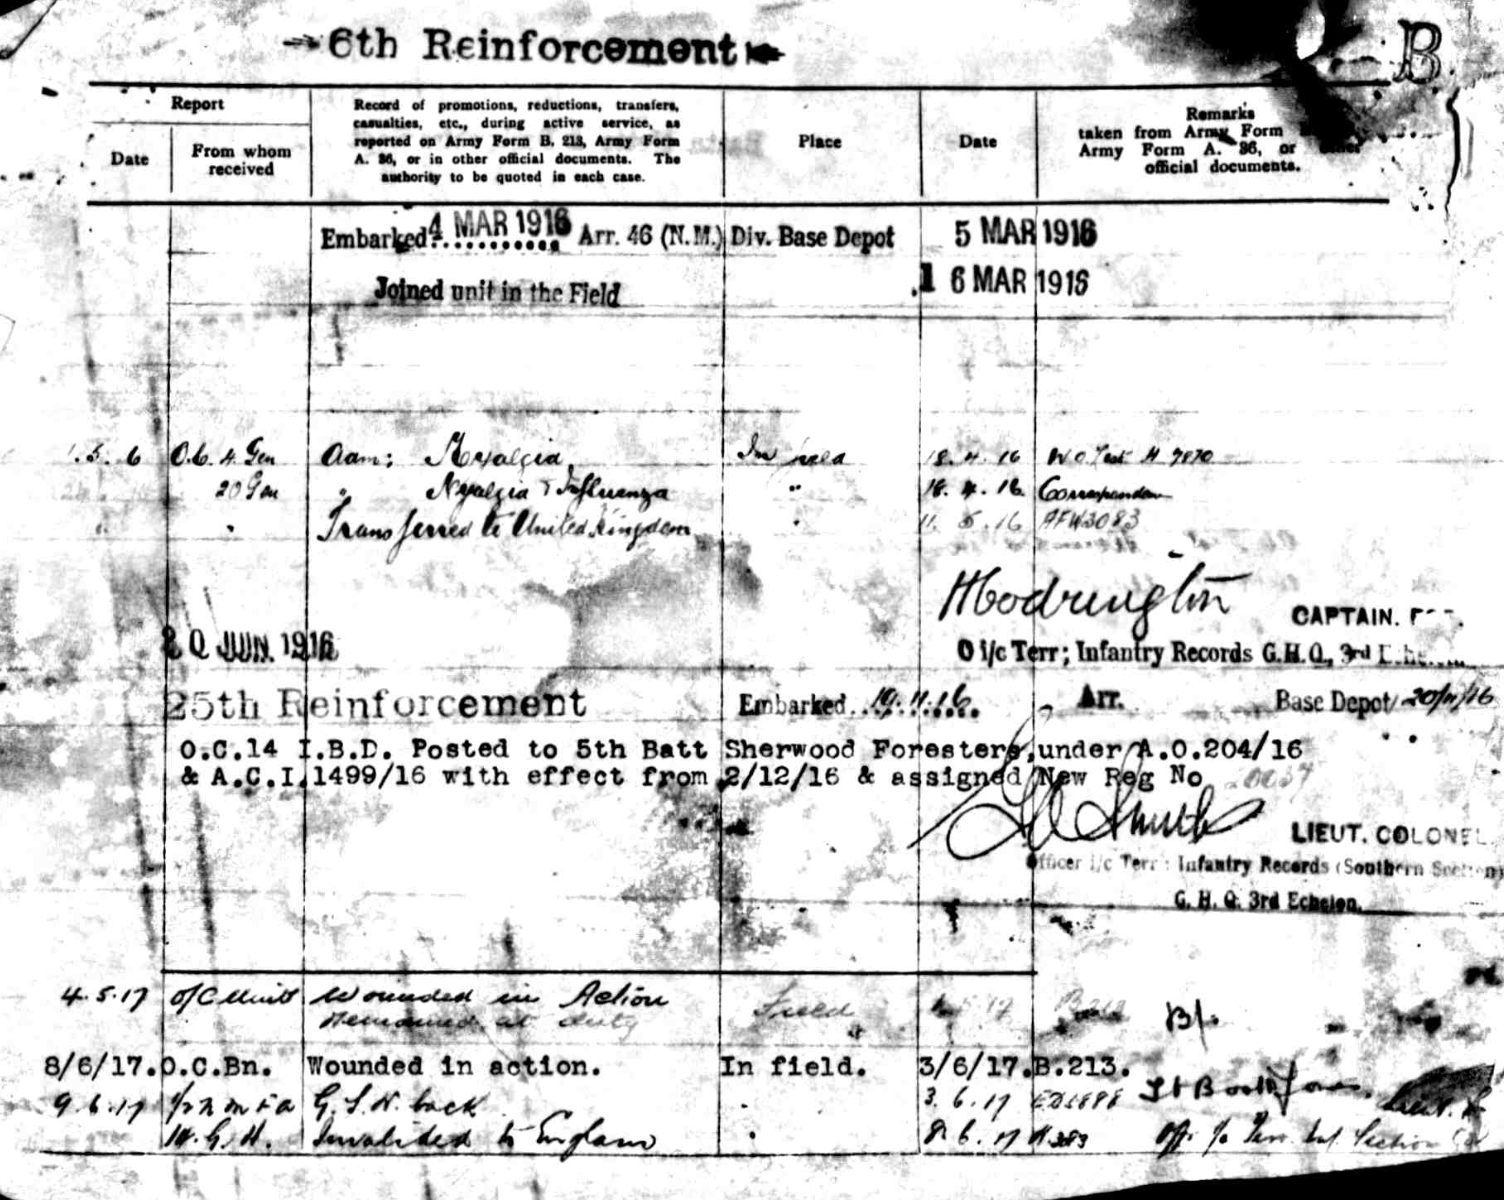 6th Reinforcement
B
Report
Date
From whom
received
Record of promotions, reductions, transfers,
casualties, etc., during active service, as
reported on Army Form B. 213, Army Form
A. 36, or in other official documents. The
authority to be quoted in each case.
Place
Date
Remarks
taken from Army Form
Army Form A. 36, or other
official documents.
Embarked 4 MAR 1916 Arr. 46 (N.M.) Div. Base Depot 5 MAR 1916
Joined unit in the Field 16 MAR 1916
O.C. 4 Gen Adm: Myalgia In field 18.4.16
20 Gen " Myalgia & Influenza " 18.4.16
Transferred to United Kingdom 16 AFW3083
CAPTAIN.
O i/c Terr; Infantry Records G.H.Q., 3rd
20 JUN. 1916
25th Reinforcement Embarked 19.11.16 Arr. Base Depot 20/11/16
O.C.14 I.B.D. Posted to 5th Batt Sherwood Foresters, under A.O.204/16
& A.C.I. 1499/16 with effect from 2/12/16 & assigned New Reg No
LIEUT. COLONEL
Officer i/c Terr: Infantry Records (Southern Section)
G. H. Q. 3rd Echelon.
4.5.17 O/C Unit Wounded in Action Field
Remained at duty
8/6/17. O.C.Bn. Wounded in action. In field. 3/6/17. B.213.
9.6.17 G.S.W. back 3.6.17
Invalided to England 8.6.17